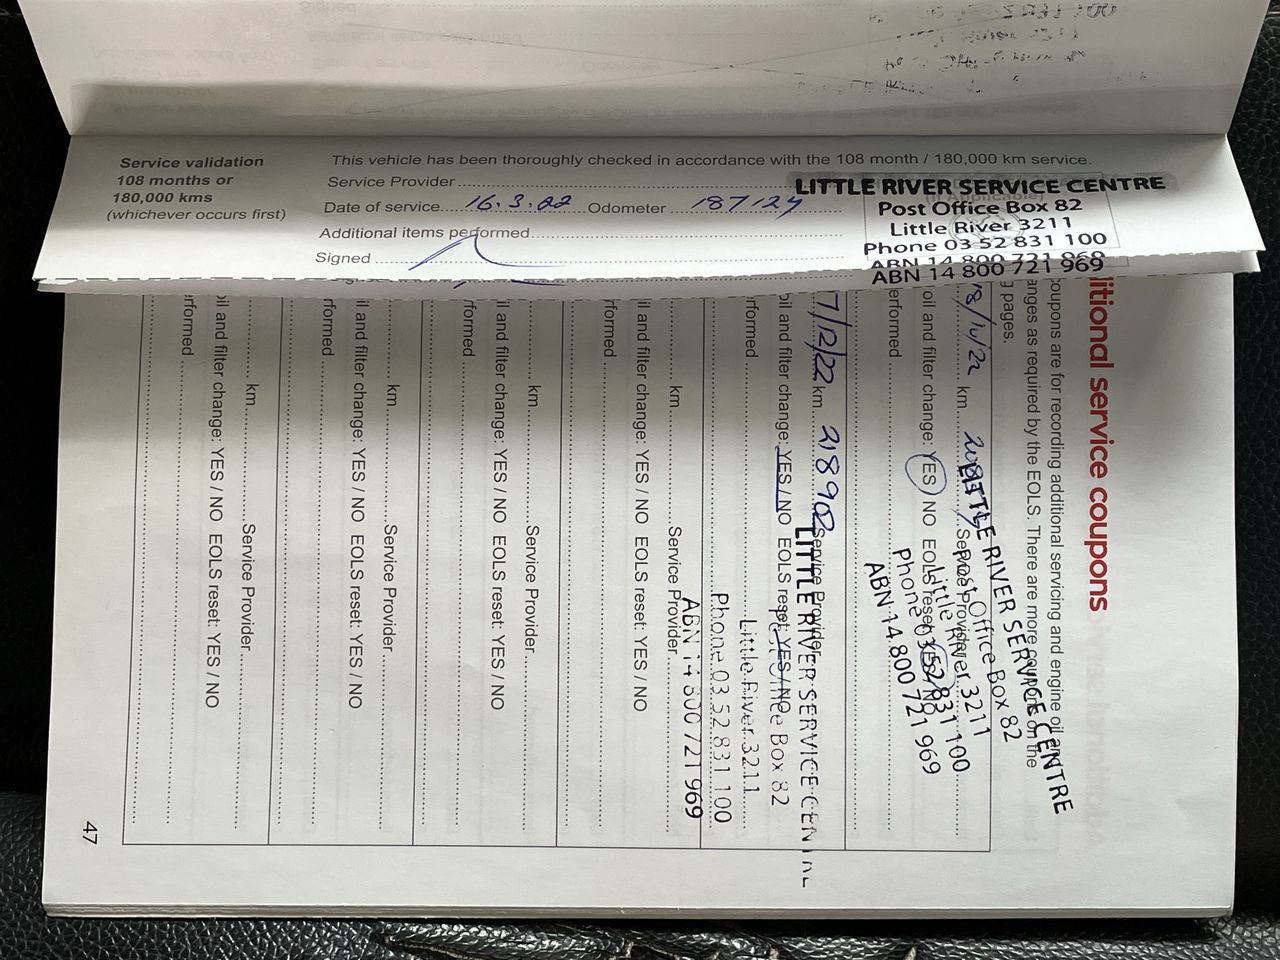 Service validation
108 months or
180,000 kms
(whichever occurs first)
This vehicle has been thoroughly checked in accordance with the 108 month / 180,000 km service.
Service Provider
Date of service 16.3.22 Odometer 187124
Additional items performed
Signed
LITTLE RIVER SERVICE CENTRE
Post Office Box 82
Little River 3211
Phone 03 52 831 100
ABN 14 800 721 969
ABN 14 800 721 969
litional service coupons
oupons are for recording additional servicing and engine oil and
anges as required by the EOLS. There are more coupons on the
g pages.
8/10/22 km Service Provider
oil and filter change: YES / NO EOLS reset: YES / NO
erformed
LITTLE RIVER SERVICE CENTRE
Post Office Box 82
Little River 3211
Phone 03 52 831 100
ABN 14 800 721 969
7/12/22 km 218902 Service Provider
oil and filter change: YES / NO EOLS reset: YES / NO
erformed
LITTLE RIVER SERVICE CENTRE
Post Office Box 82
Little River 3211
Phone 03 52 831 100
ABN 14 800 721 969
km Service Provider
il and filter change: YES / NO EOLS reset: YES / NO
rformed
km Service Provider
il and filter change: YES / NO EOLS reset: YES / NO
rformed
km Service Provider
il and filter change: YES / NO EOLS reset: YES / NO
rformed
km Service Provider
oil and filter change: YES / NO EOLS reset: YES / NO
rformed
47